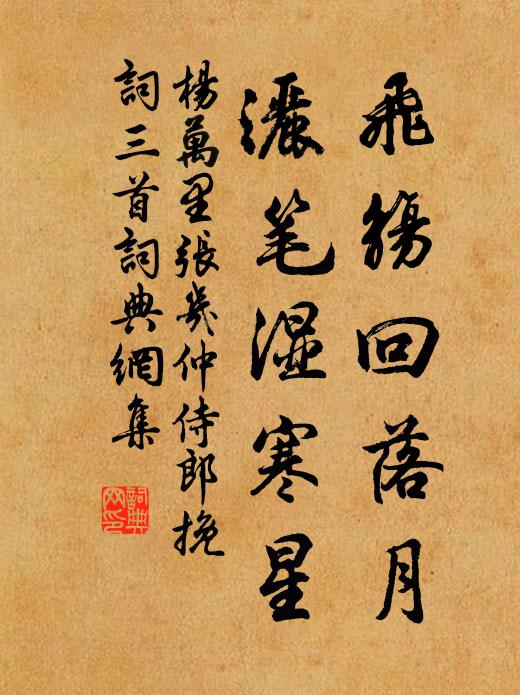 飛觴回落月
灑笔濕寒星
楊萬里張幾仲侍郎挽
詞三首詞典網集
詞典
网印